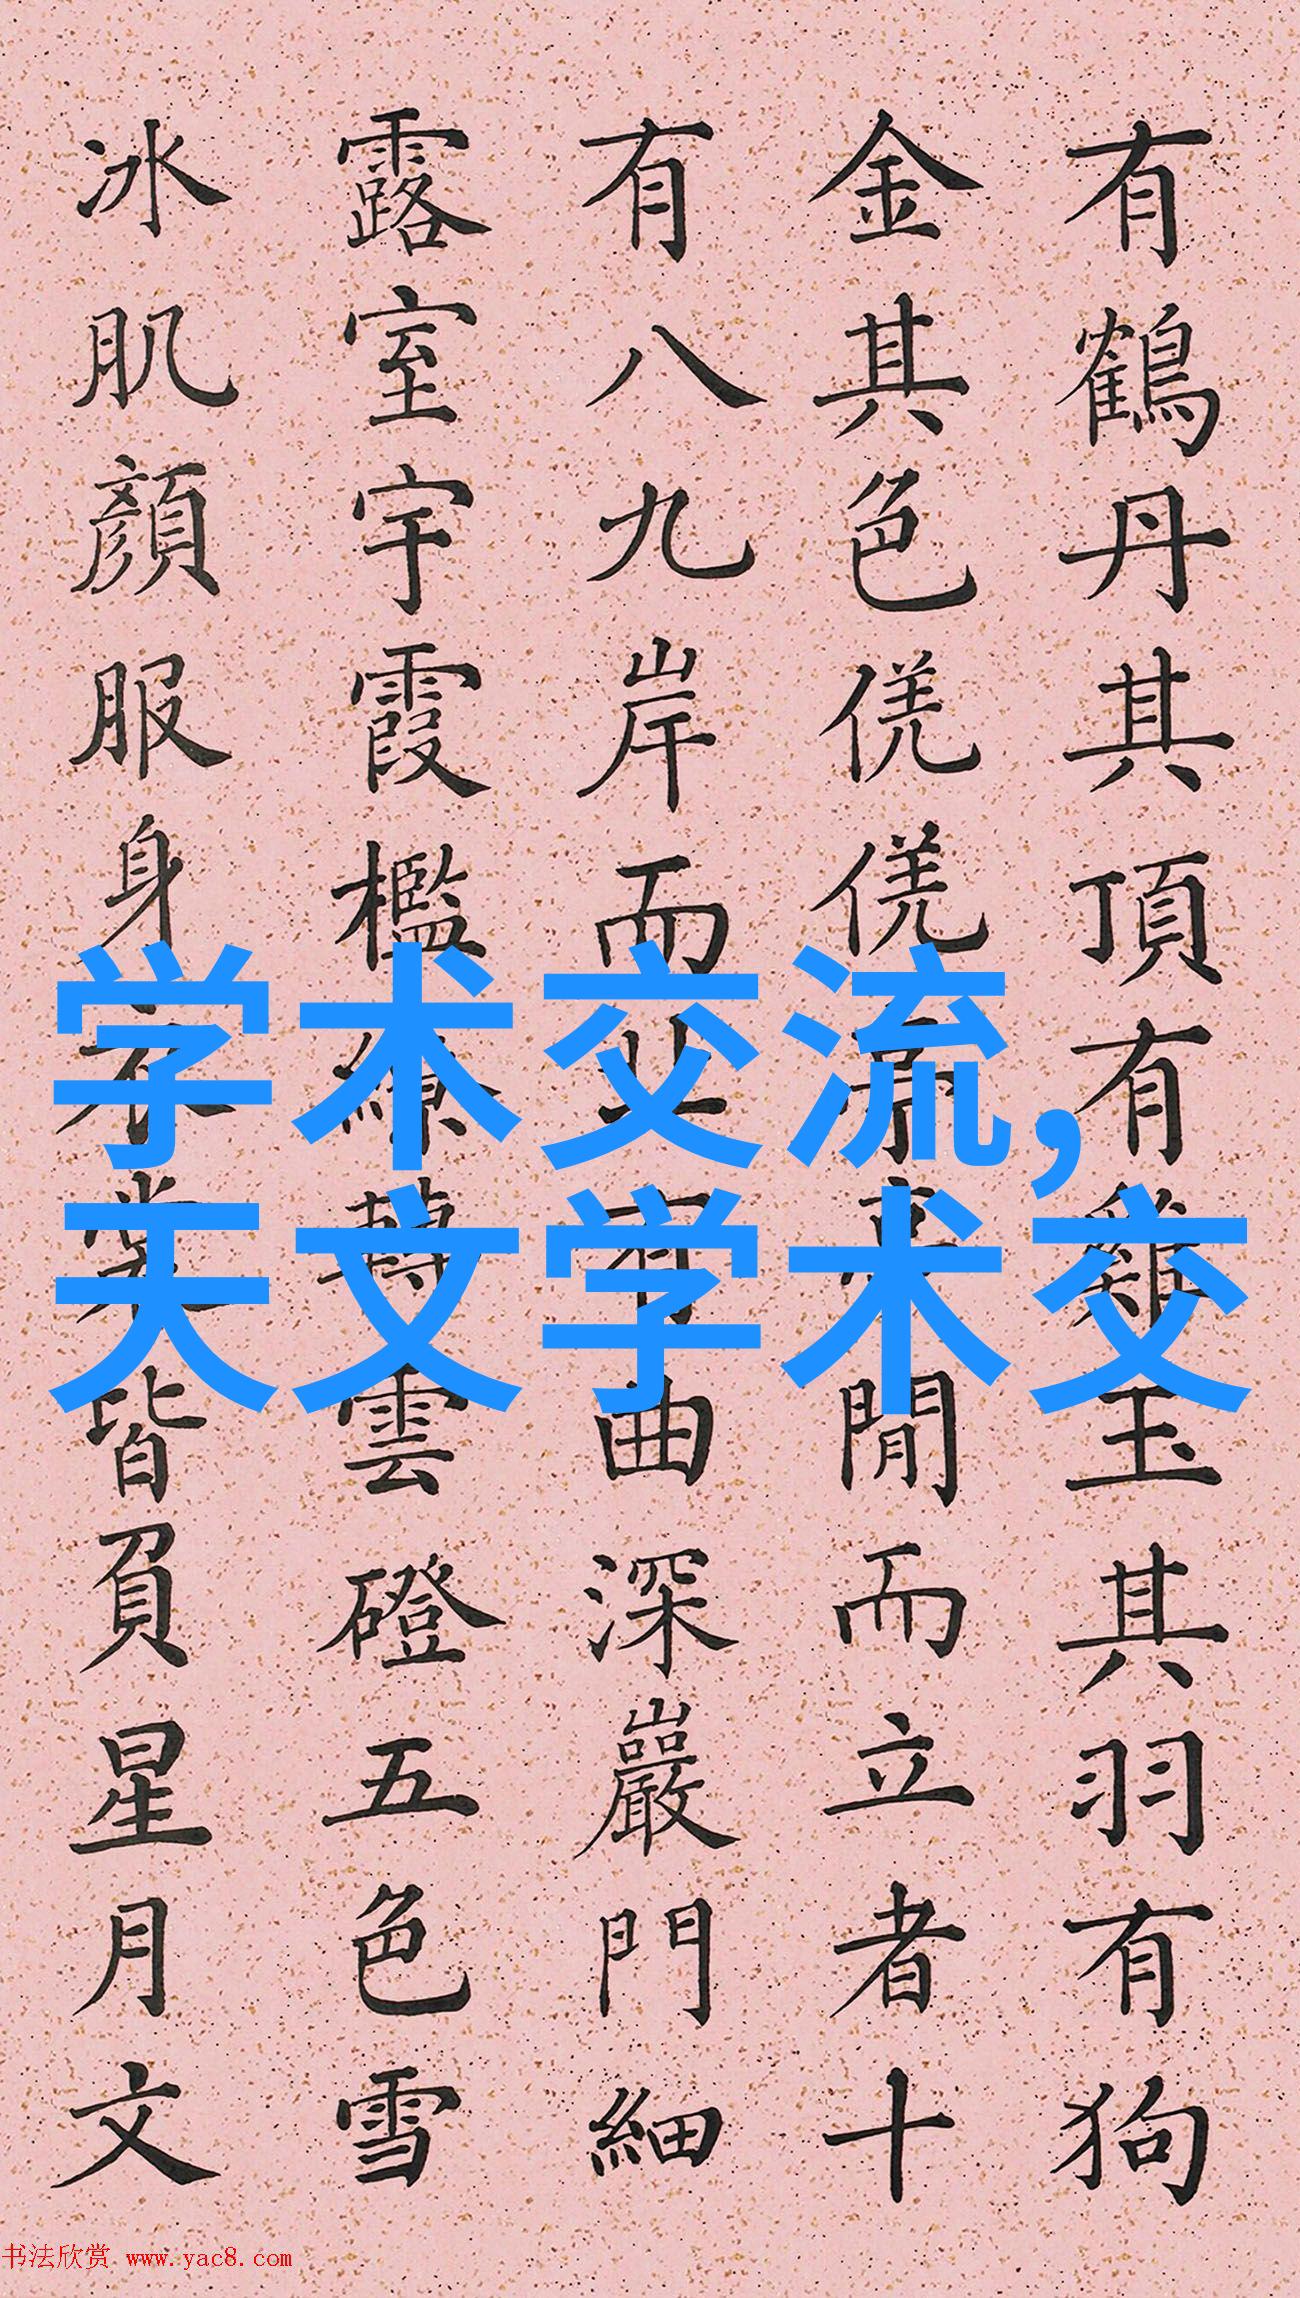 有鶴丹其頂有雞玉其羽有狗
金其色侁侁閒而立者十
有八九岸而有曲深巖門細
露室宇霞檻繚轉雲磴五色雪
冰肌顏服身衣裳皆負星月文
学术交流,
天文学术交
书法欣赏 www.yac8.com